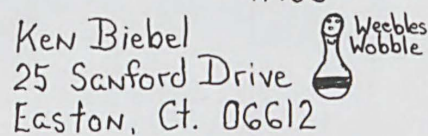 Ken Biebel
25 Sanford Drive
Easton, Ct. 06612
Weebles
Wobble